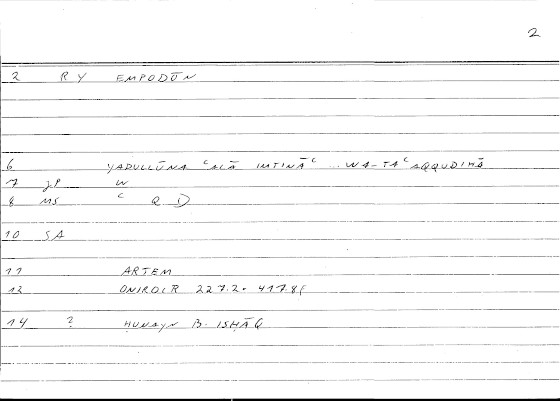 2
2 RY EMPODŌN
6 YADULLŪNA ʿALĀ IMTINĀʿ ... WA-TAʿAQQUDIHĀ
7 JP W
8 MS ʿ Q D
10 SA
11 ARTEM
12 ONIROCR 227.2 - 417.8
14 ? ḤUNAYN B. ISḤĀQ